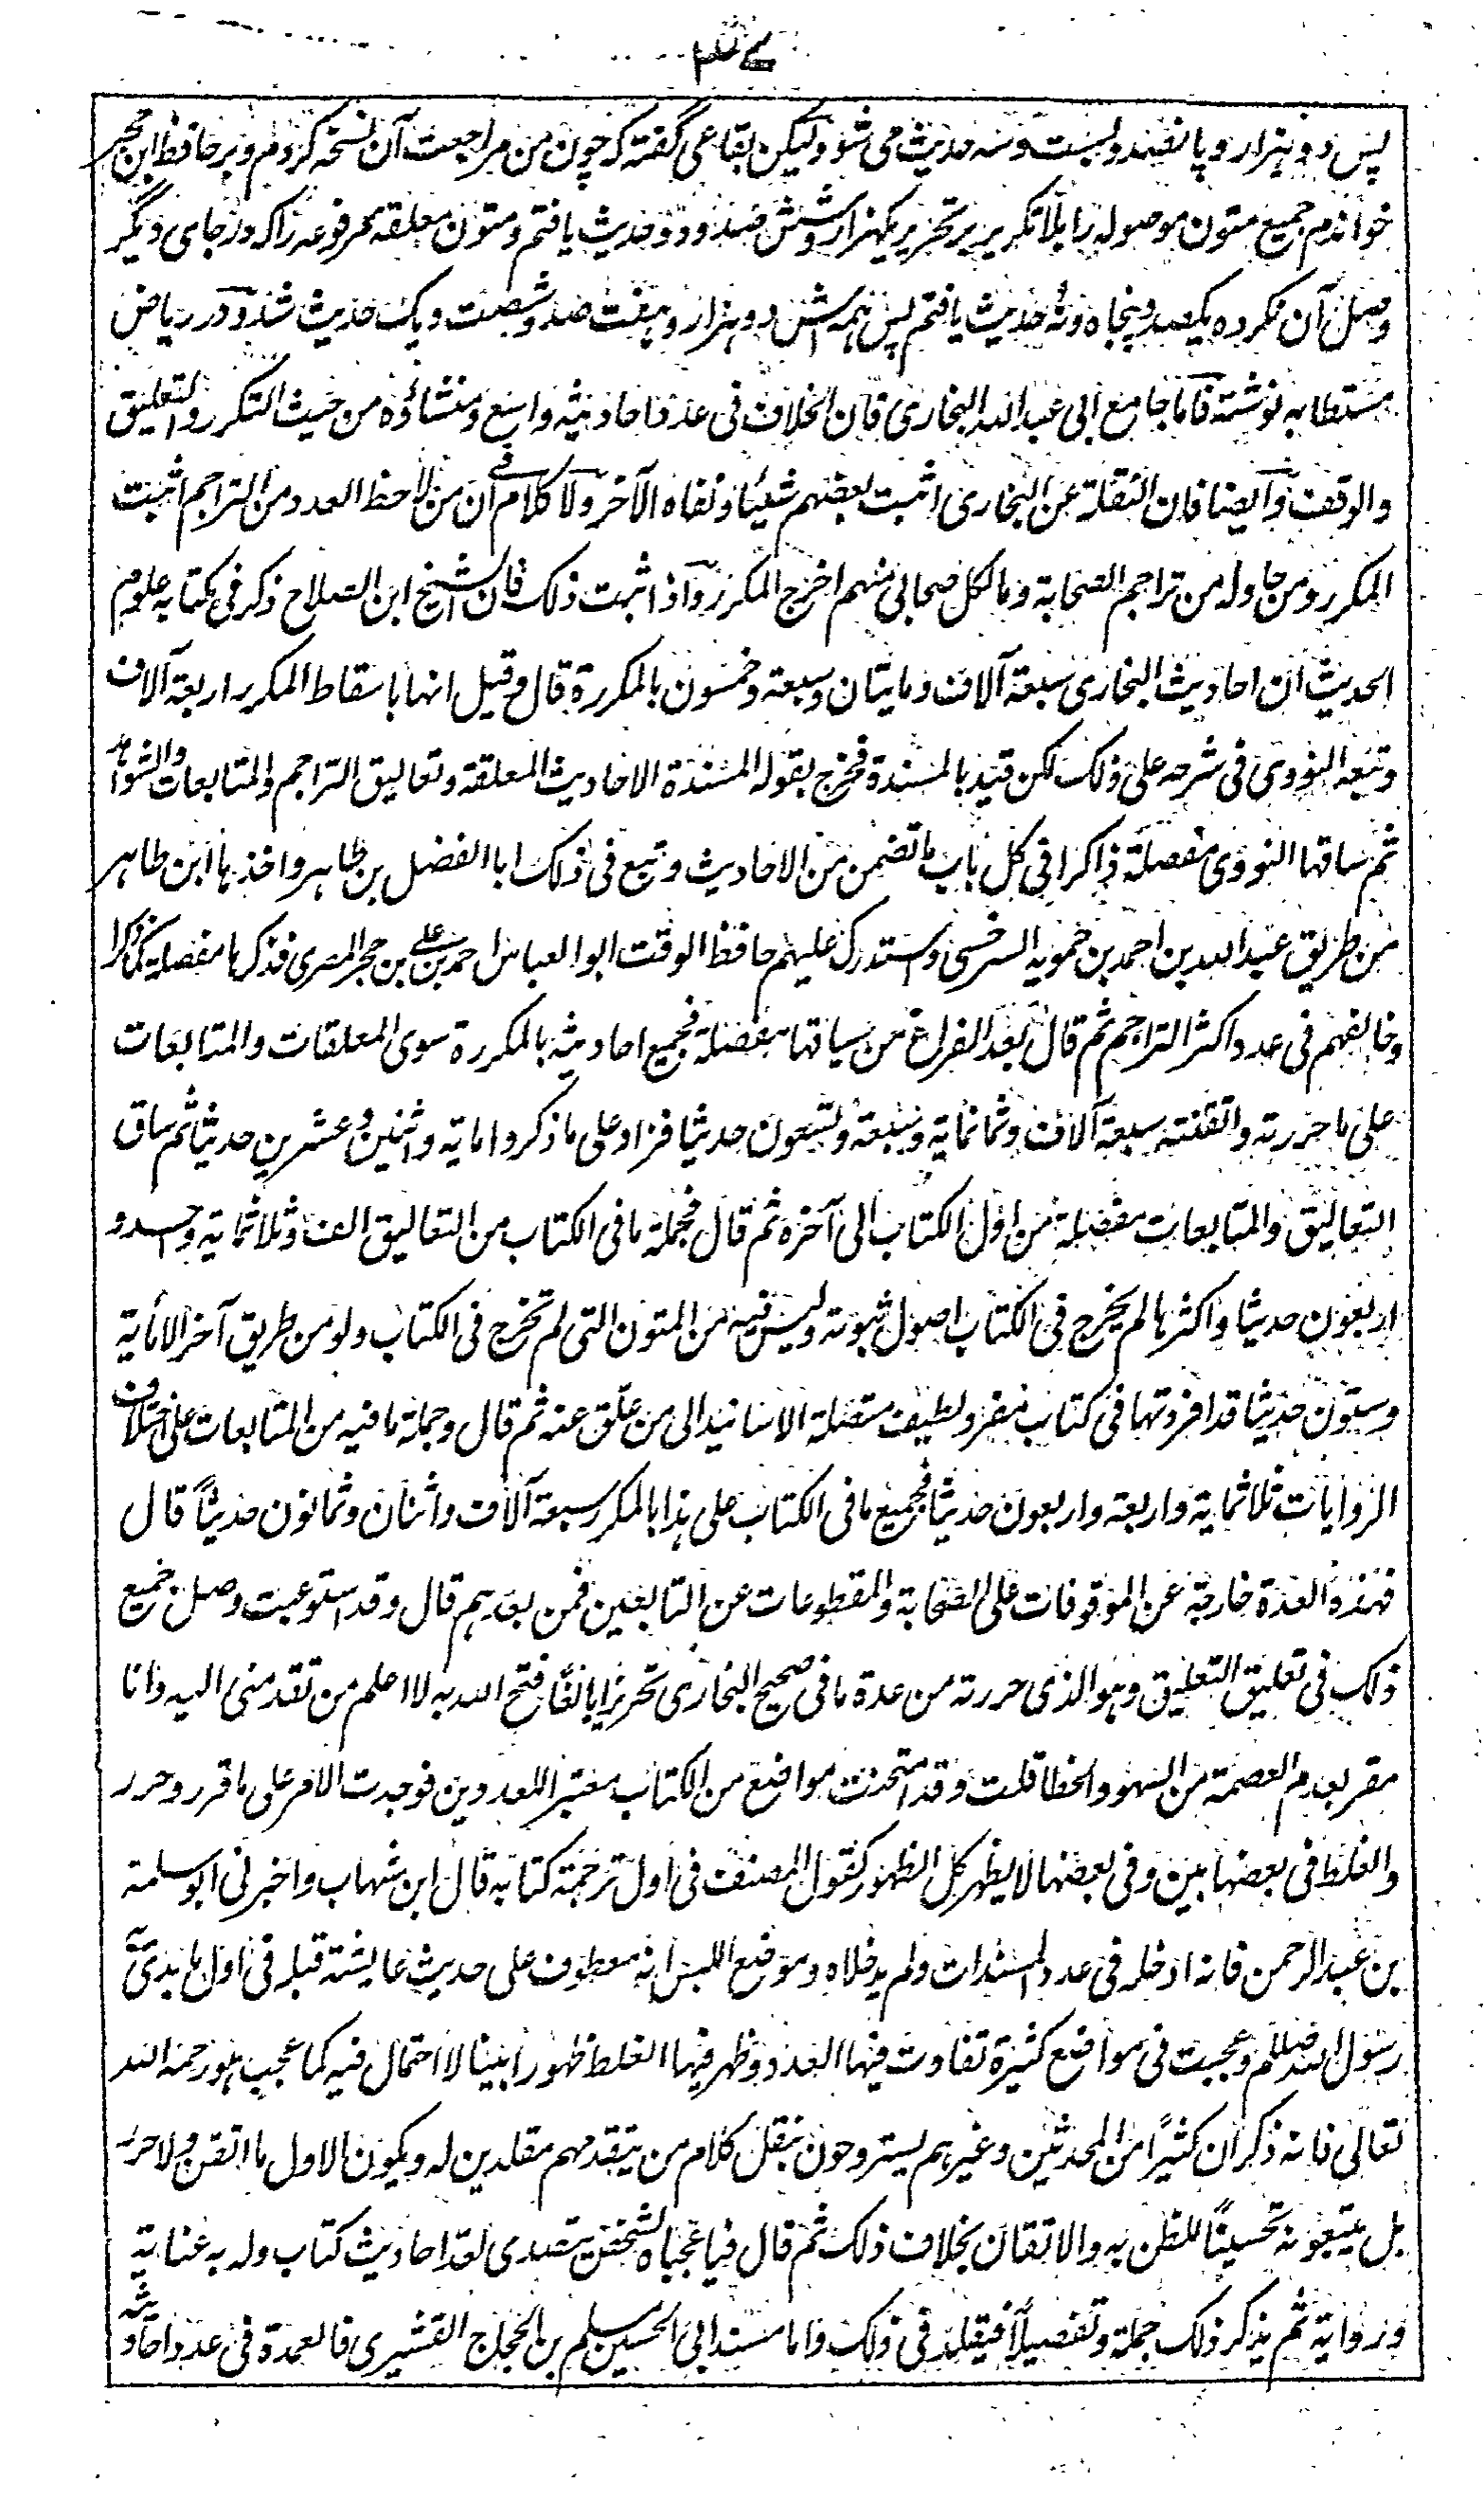 پس دو هزار و پانصد و بیست و سه حدیث می شود لیکن بقاعی گفته که چون من مراجعت آن نسخه کردم و بر حافظ ابن حجر
خواندم جمیع متون موصوله را بلا تکریر بر تحریر یکهزار و شش صد و دو حدیث یافتم و متون معلقه مرفوعه را که در جای دیگر
وصل آن نکرده یکصد و پنجاه و نه حدیث یافتم پس همه اش دو هزار و هفت صد و شصت و یک حدیث شد و در ریاض
مستطابه نوشته فاما جامع ابی عبد الله البخاری فان الخلاف فی عدد احادیثه واسع و منشاؤه من حیث التکرر والتعلیق
والوقف وایضا فان النقلة عن البخاری اثبت بعضهم شیئا ونفاه الآخر ولا کلام فی ان من لاحظ العدد من التراجم اثبت
المکرر ومن حاوله من تراجم الصحابة وما لکل صحابی منهم اخرج المکرر واذا ثبت ذلک فان الشیخ ابن الصلاح ذکر فی کتابه علوم
الحدیث ان احادیث البخاری سبعة آلاف ومایتان وسبعة وخمسون بالمکررة قال وقیل انها باسقاط المکرر اربعة آلاف
وتبعه النووی فی شرحه علی ذلک لکن قید بالمسندة فخرج بقوله المسندة الاحادیث المعلقة وتعالیق التراجم والمتابعات والشواهد
ثم ساقها النووی مفصلة ذاکرا فی کل باب ما تضمن من الاحادیث وتبع فی ذلک ابا الفضل بن طاهر واخذها ابن طاهر
من طریق عبد الله بن احمد بن حمویه السرخسی واستدرک علیهم حافظ الوقت ابو العباس احمد بن علی بن حجر المصری فذکرها مفصلة کما ذکرا
وخالفهم فی عدد اکثر التراجم ثم قال بعد الفراغ من سیاقتها مفصلة فجمیع احادیثه بالمکررة سوی المعلقات والمتابعات
علی ما حررته واتقنته سبعة آلاف وثمانمایة وسبعة وتسعون حدیثا فزاد علی ما ذکروا مایة واثنین وعشرین حدیثا ثم ساق
التعالیق والمتابعات مفصلة من اول الکتاب الی آخره ثم قال فجملة ما فی الکتاب من التعالیق الف وثلاثمایة واحد و
اربعون حدیثا واکثرها لم یخرج فی الکتاب اصول ثبوته ولیس فیه من المتون التی لم تخرج فی الکتاب ولو من طریق آخر الا مأیة
وستون حدیثا قد افردتها فی کتاب مفرد لطیف متصلة الاسانید الی من علق عنه ثم قال وجملة ما فیه من المتابعات علی اختلاف
الروایات ثلاثمایة واربعة واربعون حدیثا فجمیع ما فی الکتاب علی هذا بالمکرر سبعة آلاف واثنان وثمانون حدیثاً قال
فهذه العدة خارجة عن الموقوفات علی الصحابة والمقطوعات عن التابعین فمن بعدهم قال وقد استوعبت وصل جمیع
ذلک فی تعلیق التعلیق وهو الذی حررته من عدة ما فی صحیح البخاری تحریرا بالغا فتح الله به لا اعلم من تقدمنی الیه وانا
مقر بعدم العصمة من السهو والخطا قلت وقد امتحنت مواضع من الکتاب معتبرا للعددین فوجدت الامر علی ما قرر وحرر
والغلط فی بعضها بین وفی بعضها لا یظهر کل الظهور کقول المصنف فی اول ترجمة کتابه قال ابن شهاب واخبرنی ابو سلمة
بن عبد الرحمن فانه ادخله فی عدد المسندات ولم یدخلاه وموضع اللبس انه معطوف علی حدیث عایشة قبله فی اول ما بدئ
رسول الله صللم وعجبت فی مواضع کثیرة تفاوت فیها العدد وظهر فیها الغلط ظهورا بینا لا احتمال فیه کما عجب هو رحمه الله
تعالی فانه ذکر ان کثیرًا من المحدثین وغیرهم یستروحون بنقل کلام من یتقدمهم مقلدین له ویکون الاول ما اتقن ولا حرر
بل یتبعونه تحسینًا للظن به والاتقان بخلاف ذلک ثم قال فیا عجباه لشخص یتصدی لعد احادیث کتاب وله به عنایة
وروایة ثم یذکر ذلک جملة وتفصیلًا فیقلد فی ذلک واما مسند ابی الحسین مسلم بن الحجاج القشیری فالعمدة فی عدد احادیثه